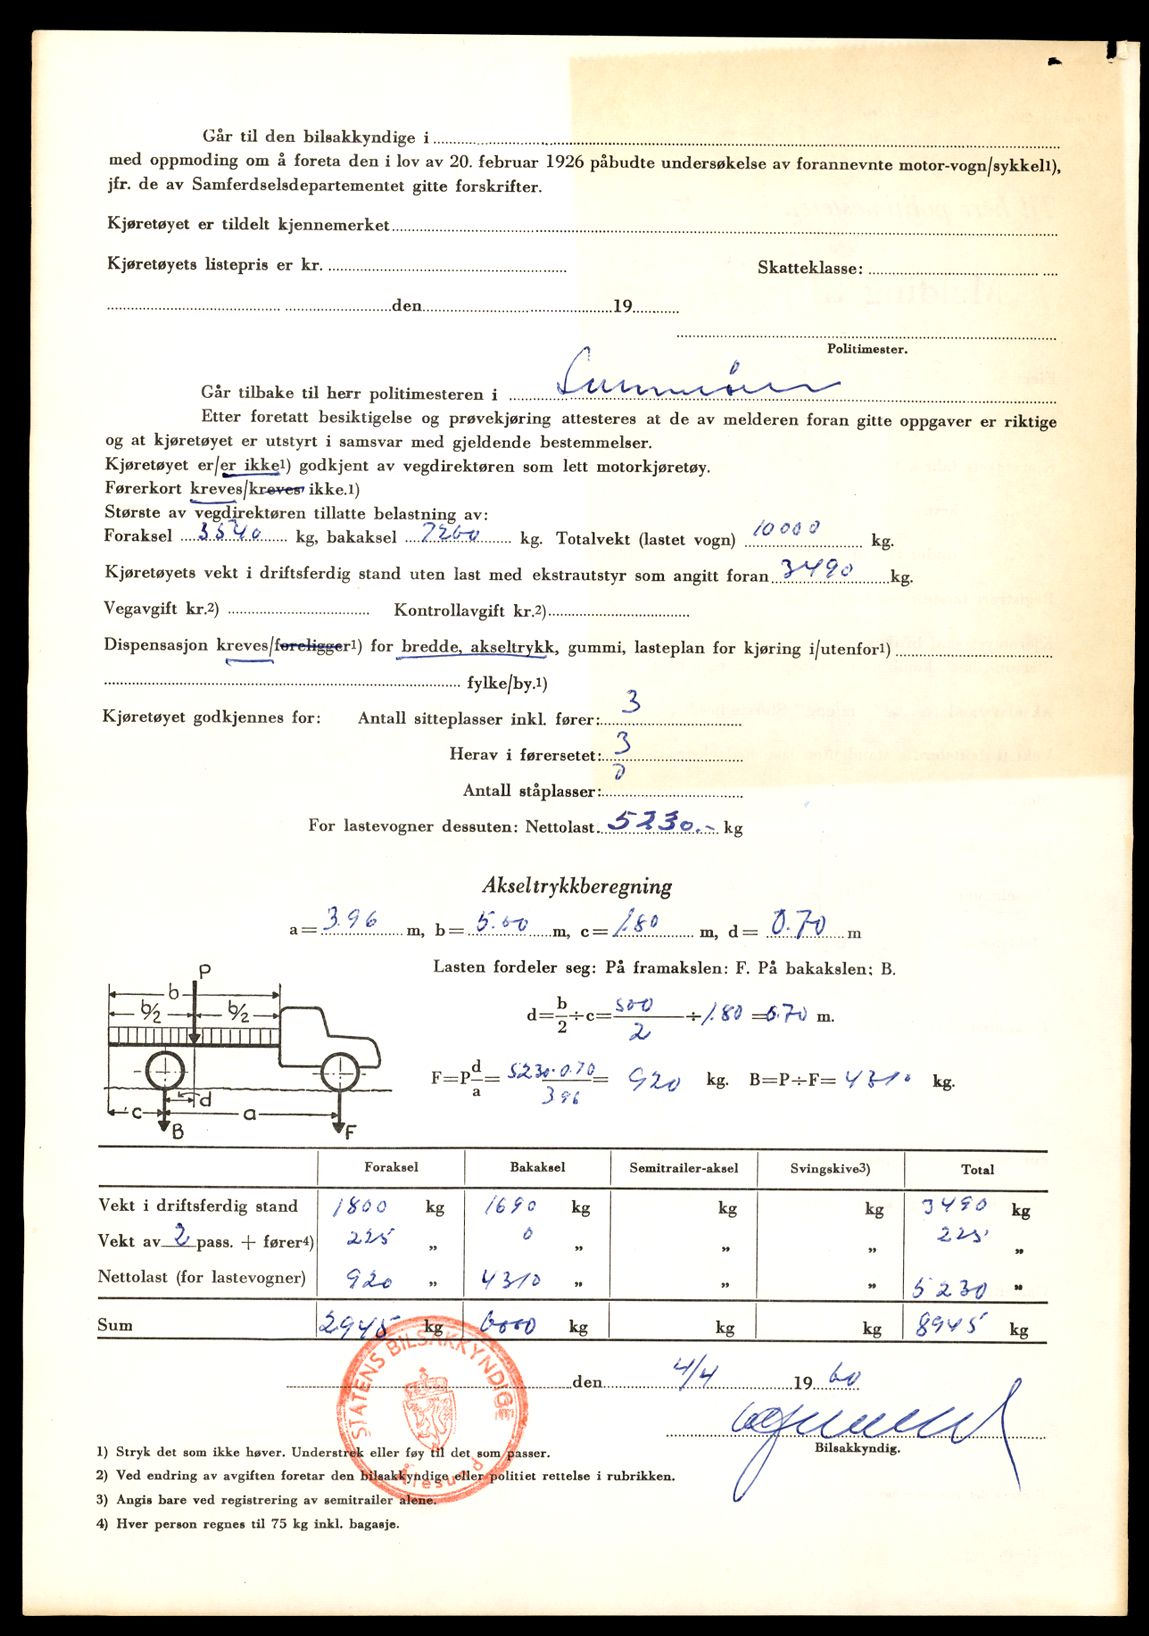 Går til den bilsakkyndige i
med oppmoding om å foreta den i lov av 20. februar 1926 påbudte undersøkelse av forannevnte motor-vogn/sykkel1),
jfr. de av Samferdselsdepartementet gitte forskrifter.
Kjøretøyet er tildelt kjennemerket
Kjøretøyets listepris er kr. Skatteklasse:
den 19
Politimester.
Går tilbake til herr politimesteren i Sunnmøre
Etter foretatt besiktigelse og prøvekjøring attesteres at de av melderen foran gitte oppgaver er riktige
og at kjøretøyet er utstyrt i samsvar med gjeldende bestemmelser.
Kjøretøyet er/er ikke1) godkjent av vegdirektøren som lett motorkjøretøy.
Førerkort kreves/kreves ikke.1)
Største av vegdirektøren tillatte belastning av:
Foraksel 3540 kg, bakaksel 7260 kg. Totalvekt (lastet vogn) 10000 kg.
Kjøretøyets vekt i driftsferdig stand uten last med ekstrautstyr som angitt foran 3490 kg.
Vegavgift kr.2) Kontrollavgift kr.2)
Dispensasjon kreves/foreligger1) for bredde, akseltrykk, gummi, lasteplan for kjøring i/utenfor1)
fylke/by.1)
Kjøretøyet godkjennes for: Antall sitteplasser inkl. fører: 3
Herav i førersetet: 3
Antall ståplasser: 0
For lastevogner dessuten: Nettolast 5230.- kg
Akseltrykkberegning
a = 3.96 m, b = 5.00 m, c = 1.80 m, d = 0.70 m
Lasten fordeler seg: På framakslen: F. På bakakslen: B.
P
b
b/2 b/2
d = b/2 ÷ c = 500/2 ÷ 1.80 = 0.70 m.
F = P d/a = 5230·0.70/396 = 920 kg. B = P ÷ F = 4310 kg.
c d a
B F
Foraksel Bakaksel Semitrailer-aksel Svingskive3) Total
Vekt i driftsferdig stand 1800 kg 1690 kg kg kg 3490 kg
Vekt av 2 pass. + fører4) 225 „ 0 „ „ „ 225 „
Nettolast (for lastevogner) 920 „ 4310 „ „ „ 5230 „
Sum 2945 kg 6000 kg kg kg 8945 kg
STATENS BILSAKKYNDIGE
Ålesund
den 4/4 19 60
Bilsakkyndig.
1) Stryk det som ikke høver. Understrek eller føy til det som passer.
2) Ved endring av avgiften foretar den bilsakkyndige eller politiet rettelse i rubrikken.
3) Angis bare ved registrering av semitrailer alene.
4) Hver person regnes til 75 kg inkl. bagasje.